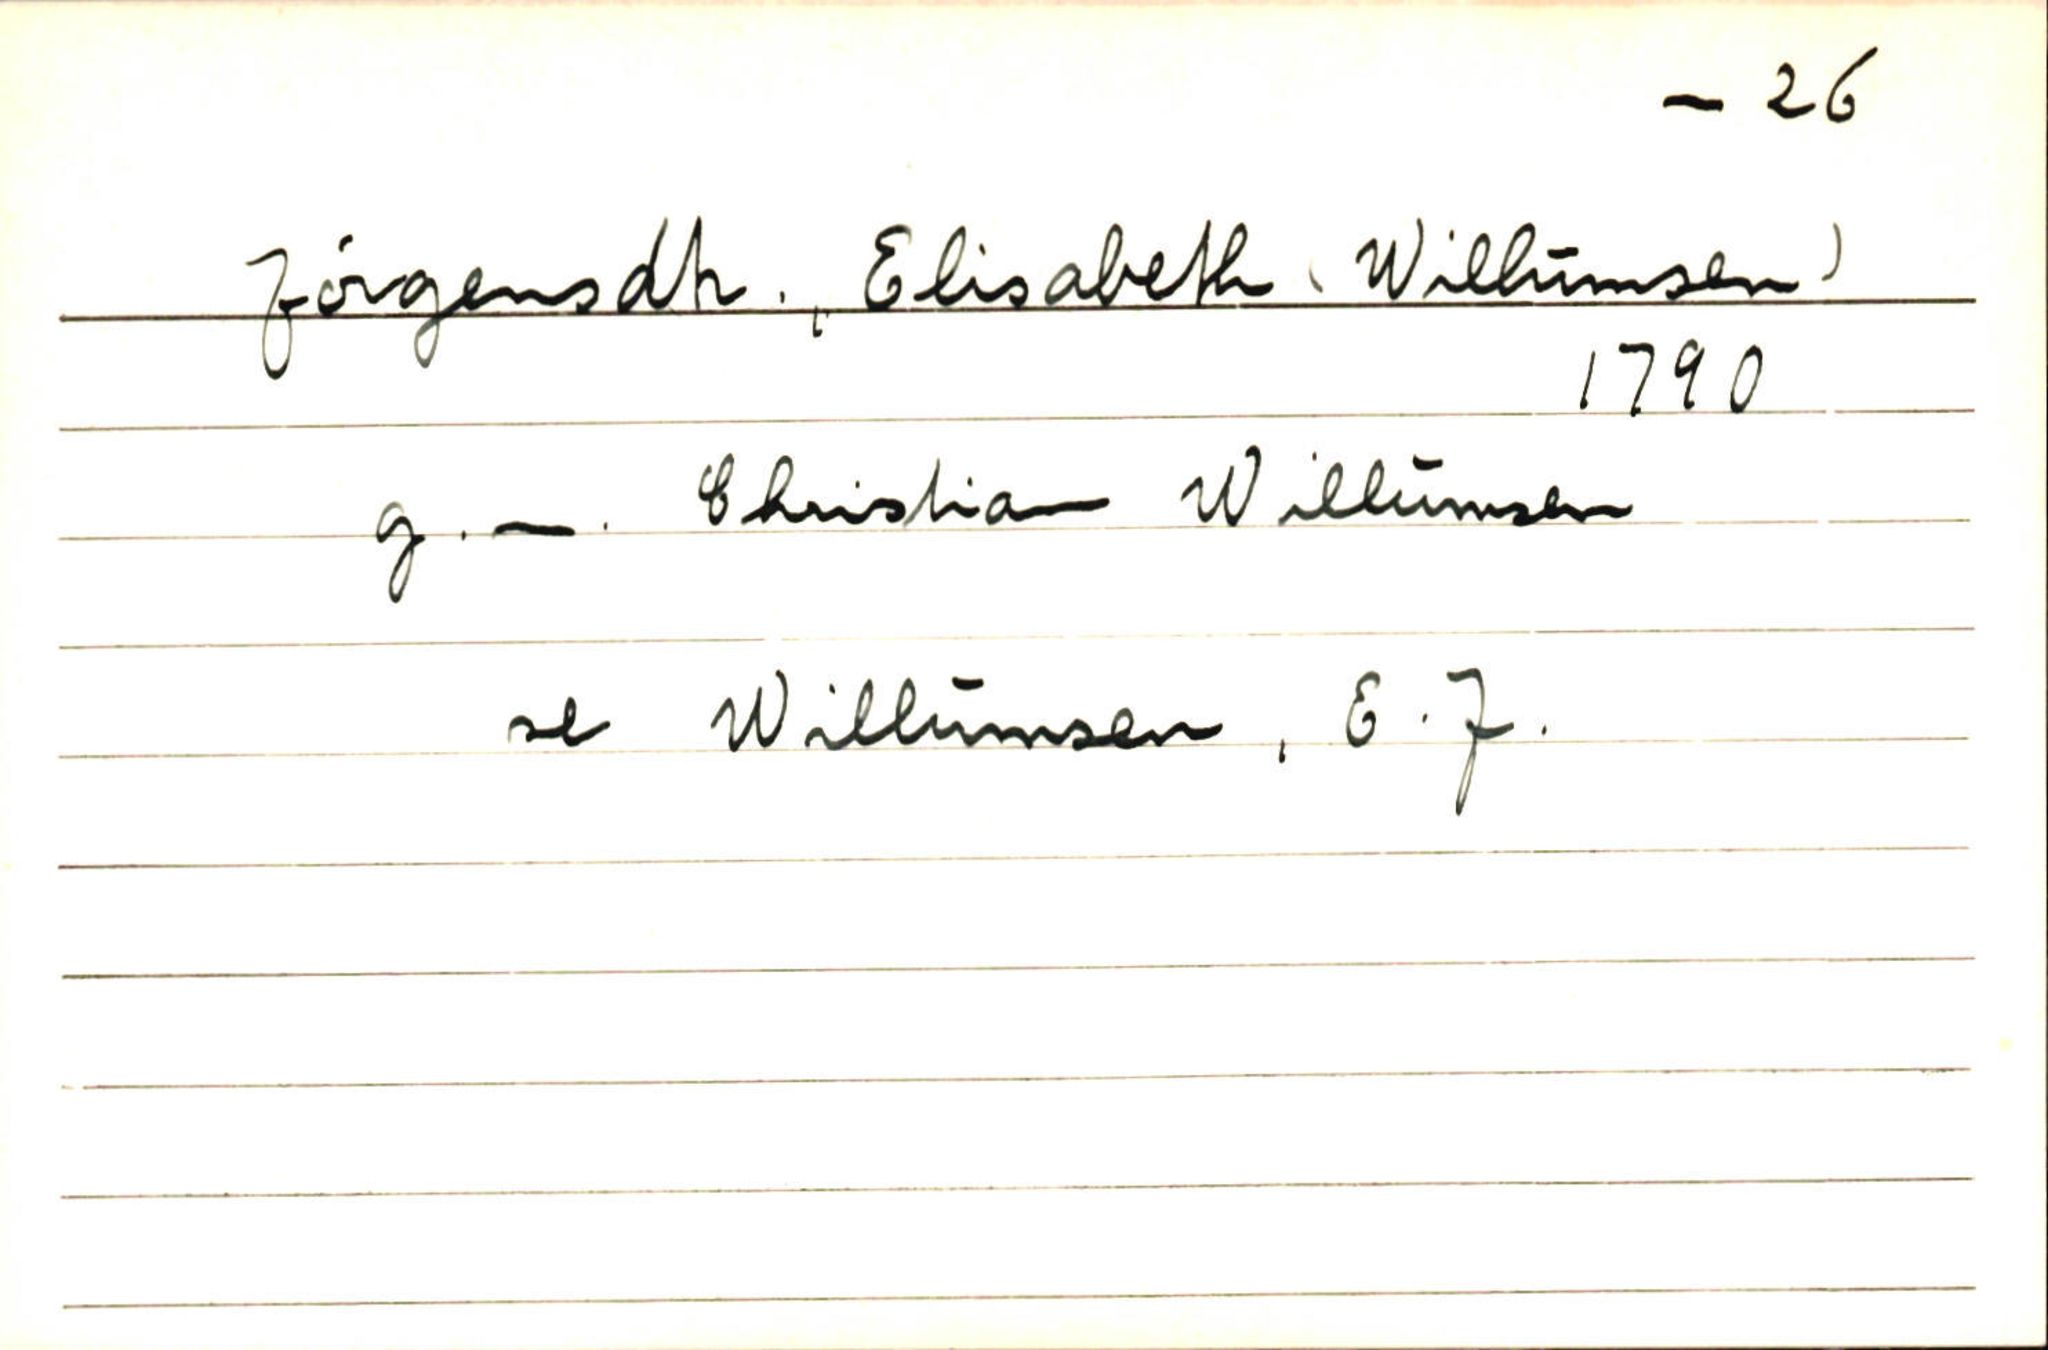 - 26
Jörgensdtr., Elisabeth (Willumsen)
1790
g. -. Christian Willumsen
se Willumsen, E. J.